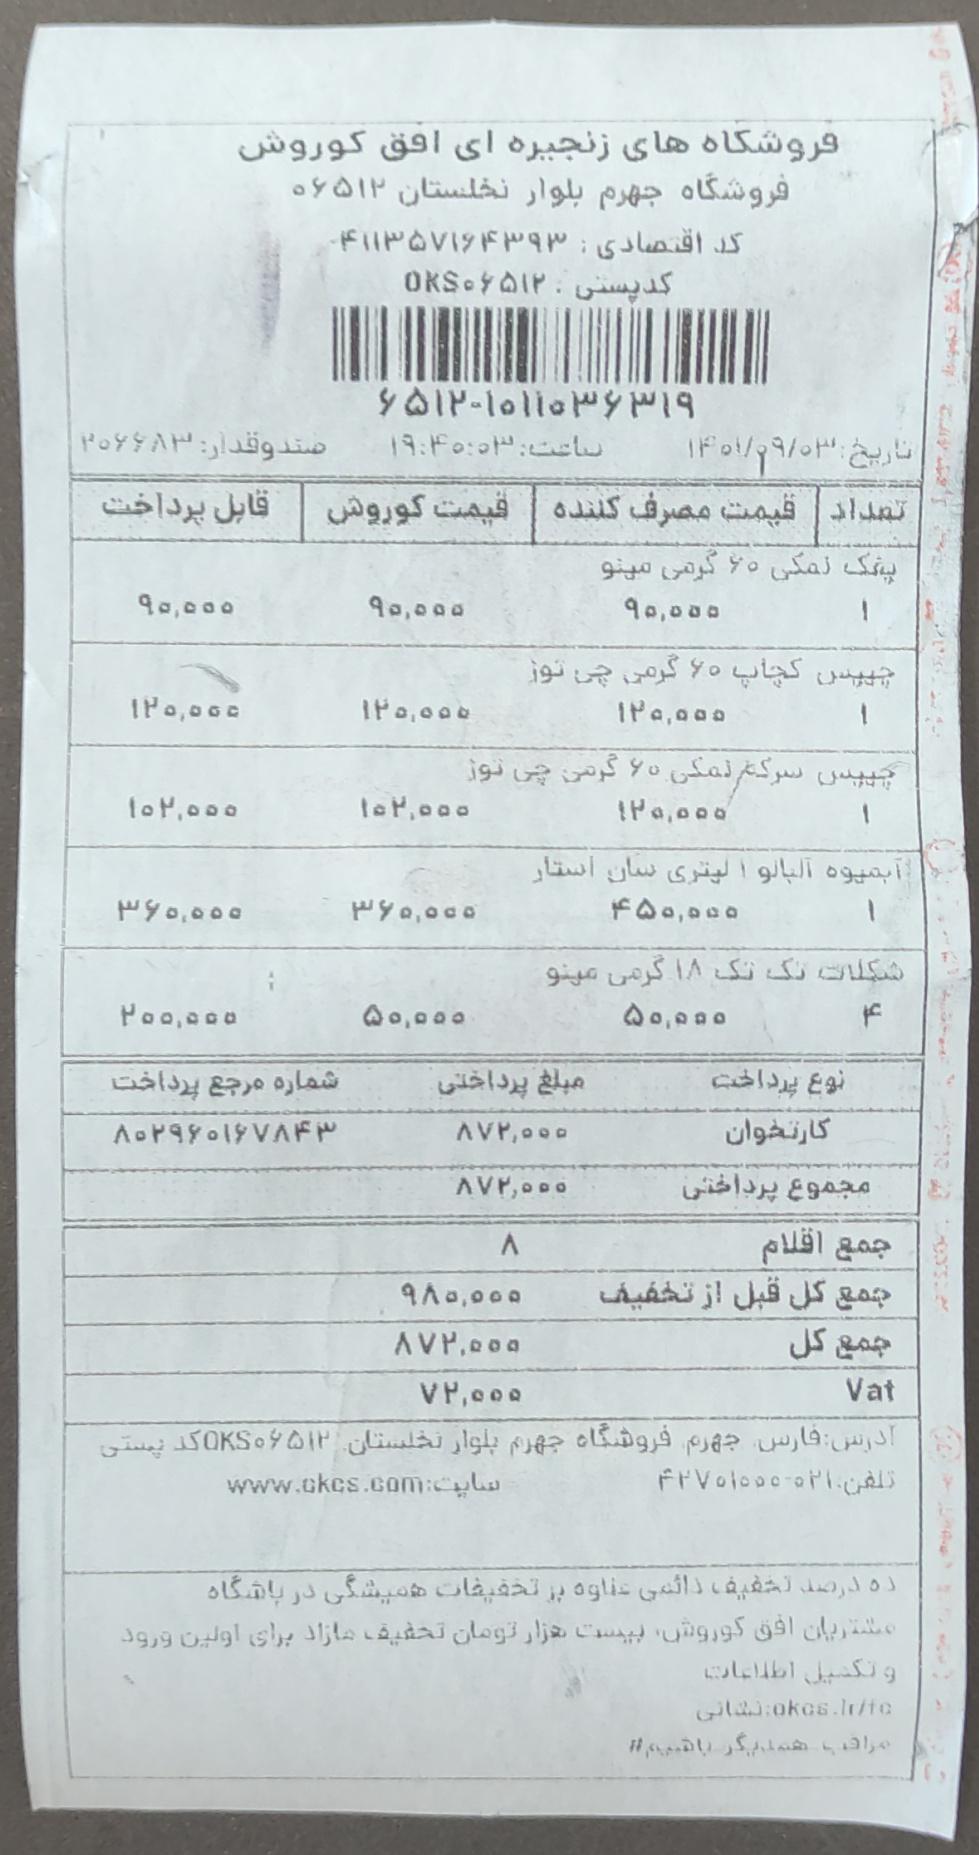 فروشگاه های زنجیره ای افق کوروش
فروشگاه جهرم بلوار نخلستان ۰۶۵۱۲
کد اقتصادی : ۴۱۱۳۵۷۱۶۴۳۹۳
کدپستی : OKS۰۶۵۱۲
۶۵۱۲-۱۰۱۱۰۳۶۳۱۹
تاریخ: ۱۴۰۱/۰۹/۰۳ ساعت: ۱۹:۴۰:۰۳ صندوقدار: ۲۰۶۶۸۳
تعداد قیمت مصرف کننده قیمت کوروش قابل پرداخت
پفک نمکی ۶۰ گرمی مینو
۱ ۹۰,۰۰۰ ۹۰,۰۰۰ ۹۰,۰۰۰
چیپس کچاپ ۶۰ گرمی چی توز
۱ ۱۲۰,۰۰۰ ۱۲۰,۰۰۰ ۱۲۰,۰۰۰
چیپس سرکه نمکی ۶۰ گرمی چی توز
۱ ۱۲۰,۰۰۰ ۱۰۲,۰۰۰ ۱۰۲,۰۰۰
آبمیوه آلبالو ۱ لیتری سان استار
۱ ۴۵۰,۰۰۰ ۳۶۰,۰۰۰ ۳۶۰,۰۰۰
شکلات تک تک ۱۸ گرمی مینو
۴ ۵۰,۰۰۰ ۵۰,۰۰۰ ۲۰۰,۰۰۰
نوع پرداخت مبلغ پرداختی شماره مرجع پرداخت
کارتخوان ۸۷۲,۰۰۰ ۸۰۲۹۶۰۱۶۷۸۴۳
مجموع پرداختی ۸۷۲,۰۰۰
جمع اقلام ۸
جمع کل قبل از تخفیف ۹۸۰,۰۰۰
جمع کل ۸۷۲,۰۰۰
Vat ۷۲,۰۰۰
آدرس:فارس, جهرم, فروشگاه جهرم بلوار نخلستان, OKS۰۶۵۱۲کد پستی
تلفن:۰۲۱-۴۲۷۰۱۰۰۰ سایت:www.okcs.com
ده درصد تخفیف دائمی علاوه بر تخفیفات همیشگی در باشگاه
مشتریان افق کوروش، بیست هزار تومان تخفیف مازاد برای اولین ورود
و تکمیل اطلاعات
نشانی:okcs.ir/fc
مراقب همدیگر باشیم#